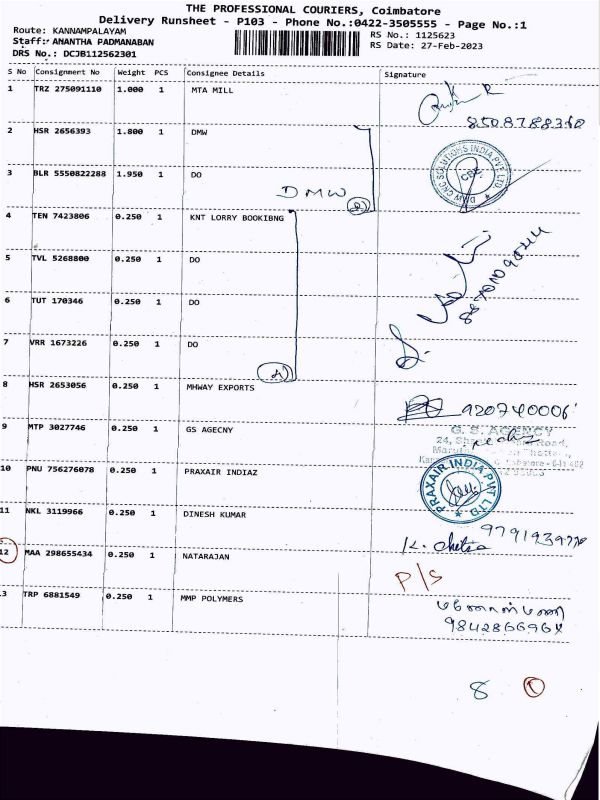 THE PROFESSIONAL COURIERS, Coimbatore
Delivery Runsheet - P103 - Phone No.:0422-3505555 - Page No.:1
Route: KANNAMPALAYAM
Staff: ANANTHA PADMANABAN
DRS No.: DCJB112562301
RS No.: 1125623
RS Date: 27-Feb-2023
S No Consignment No Weight PCS Consignee Details Signature
1 TRZ 275091110 1.000 1 MTA MILL
8508788310
2 HSR 2656393 1.800 1 DMW
3 BLR 5550822288 1.950 1 DO
DMW
4 TEN 7423806 0.250 1 KNT LORRY BOOKIBNG
5 TVL 5268800 0.250 1 DO
6 TUT 170346 0.250 1 DO
7 VRR 1673226 0.250 1 DO
8 HSR 2653056 0.250 1 MHWAY EXPORTS
920740006
9 MTP 3027746 0.250 1 GS AGECNY
G. S. AGENCY
10 PNU 756276078 0.250 1 PRAXAIR INDIAZ
PRAXAIR INDIA PVT LTD
11 NKL 3119966 0.250 1 DINESH KUMAR
K. Chitra
12 MAA 298655434 0.250 1 NATARAJAN
P/S
3 TRP 6881549 0.250 1 MMP POLYMERS
9842866964
8 1